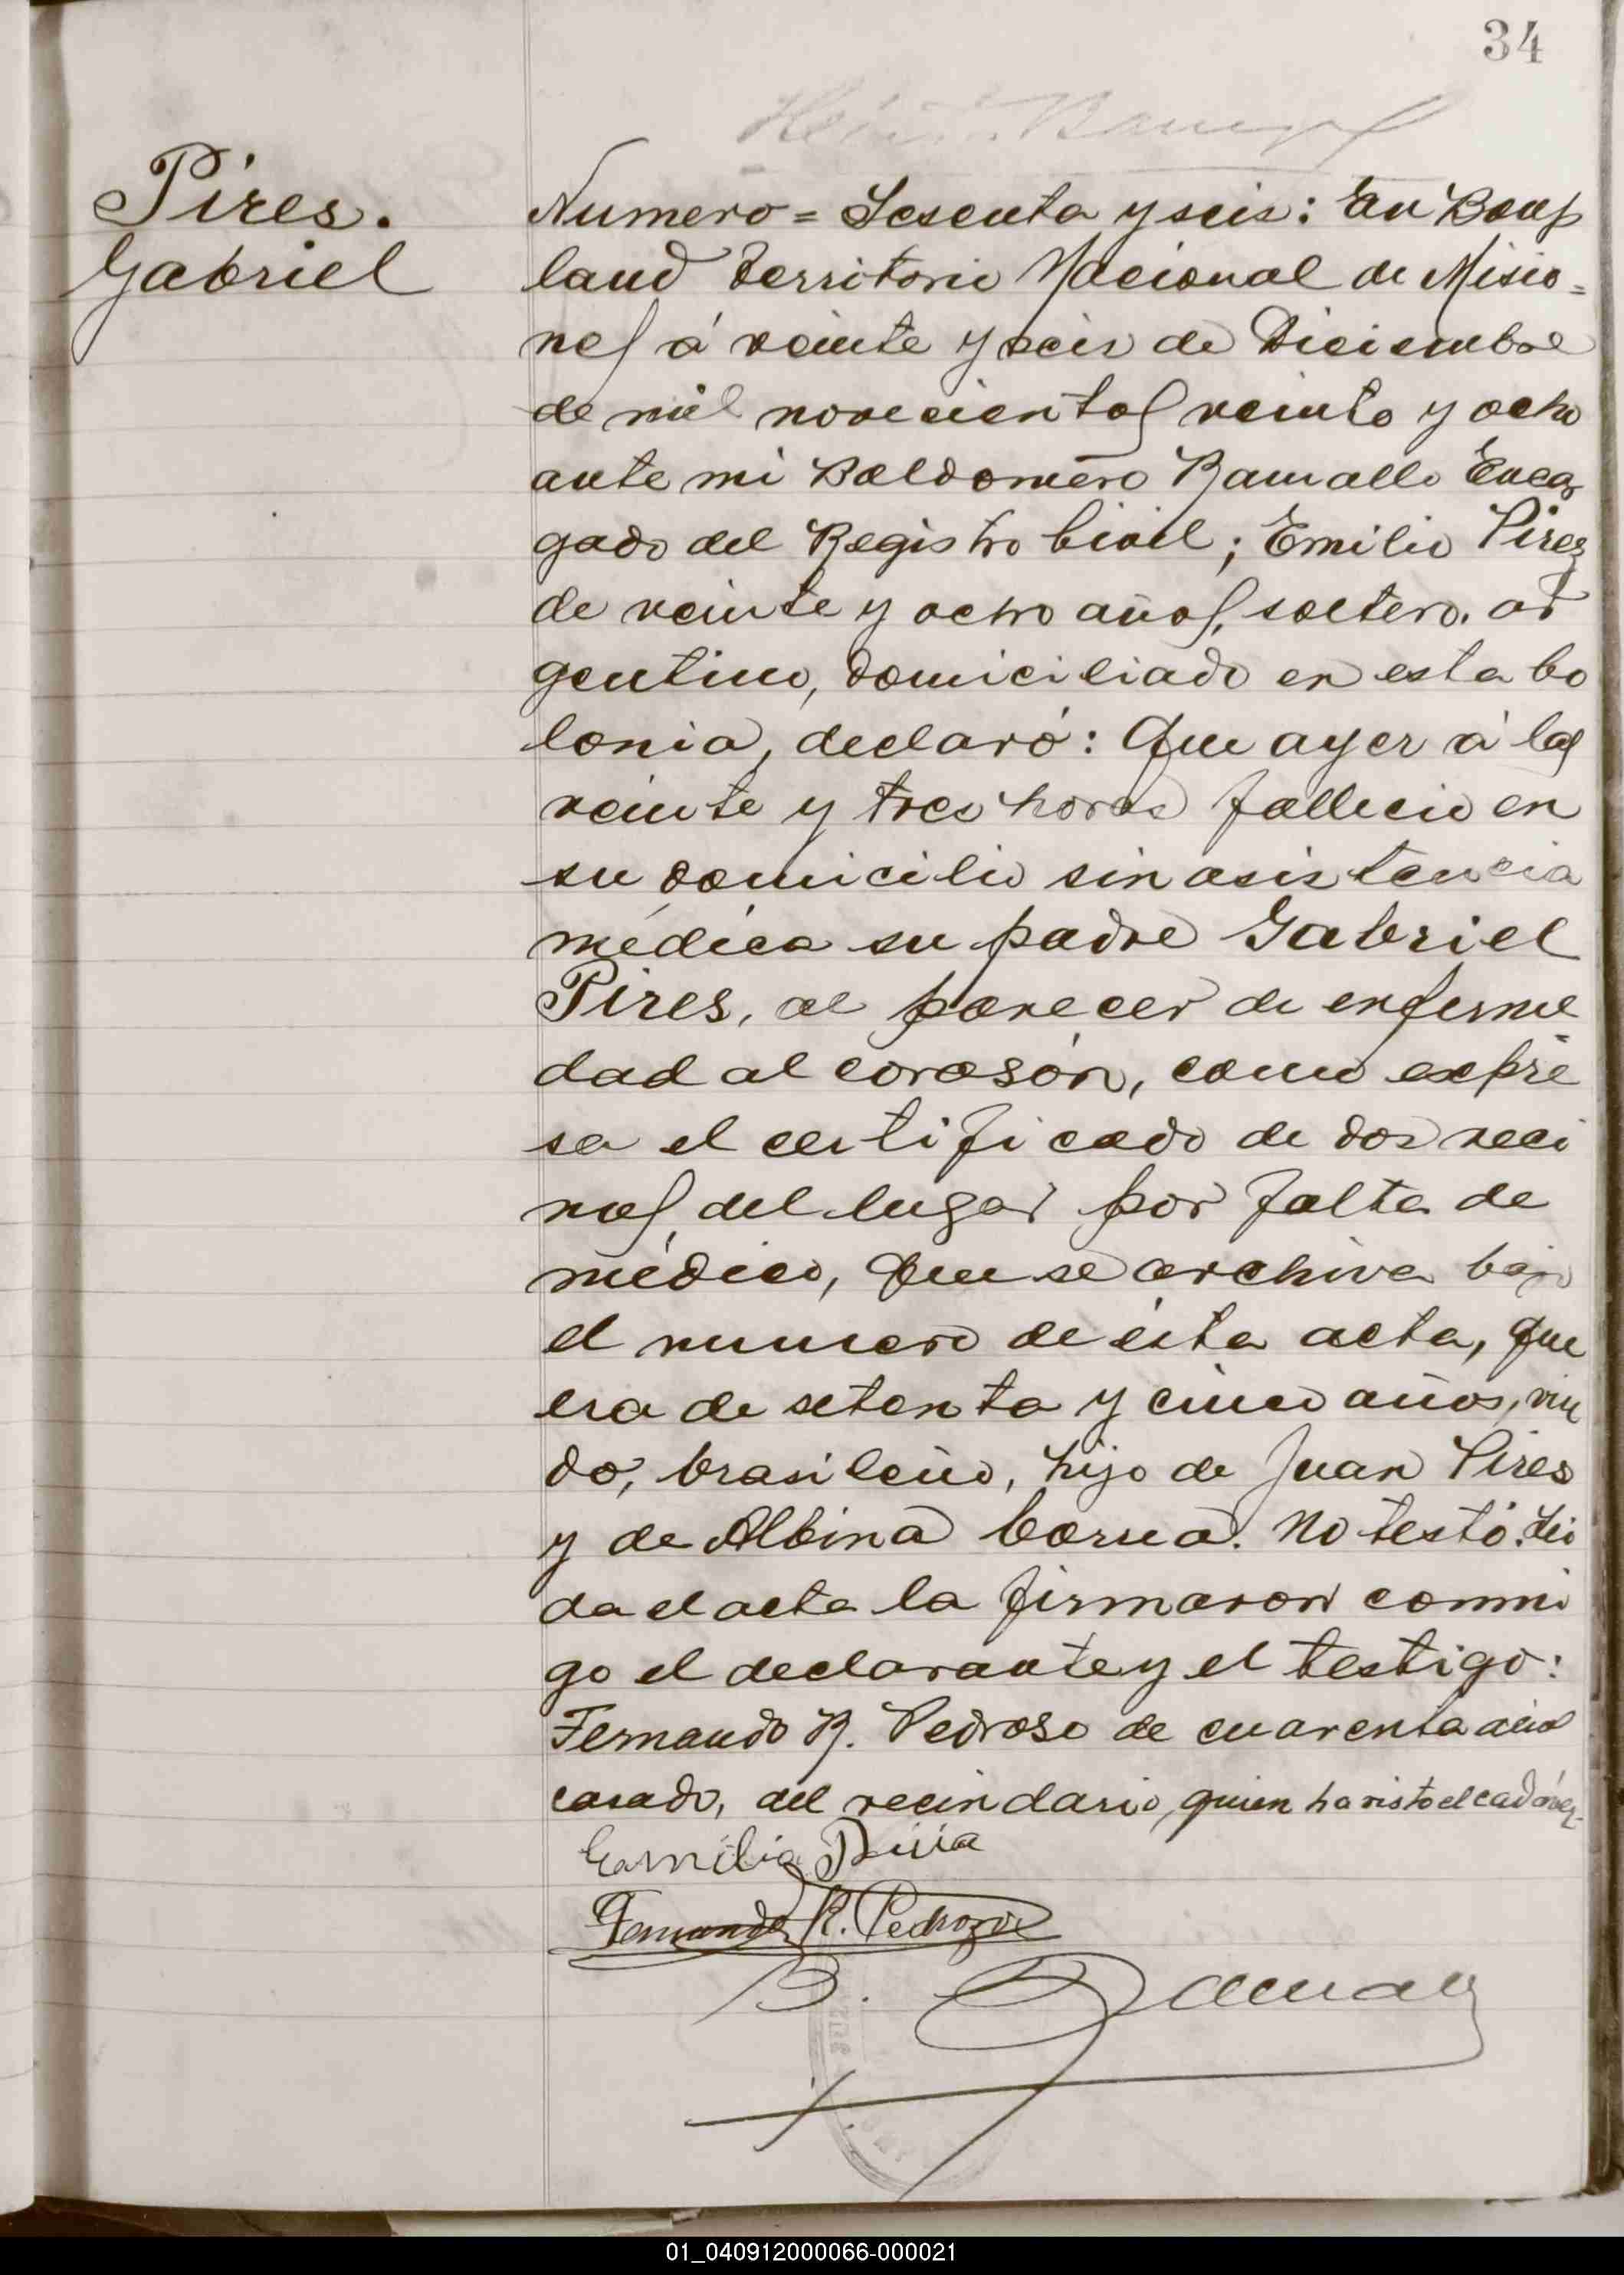 34
Pires.
Gabriel
Numero = Sesenta y seis: En Bonp
land Territorio Nacional de Misio=
nes á veinte y seis de Diciembre
de mil novecientos veinte y ocho
ante mi Baldomero Ramallo Encar
gado del Registro Civil; Emilio Pires
de veinte y ocho años, soltero, ar
gentino, domiciliado en esta Co
lonia, declaró: Que ayer á las
veinte y tres horas fallecio en
su domicilio sin asistencia
médica su padre Gabriel
Pires, al parecer de enferme
dad al corasón, como expre
sa el certificado de dos veci
nos del lugar por falta de
médico, que se archiva bajo
el numero de ésta acta, que
era de setenta y cinco años, viu
do, brasileño, hijo de Juan Pires
y de Albina Correa. No testó. Lei
da el acta la firmaron conmi
go el declarante y el testigo:
Fernando R. Pedroso de cuarenta años
casado, del vecindario, quien ha visto el cadáver.-
Fernando R. Pedrozo
B.
01_040912000066-000021